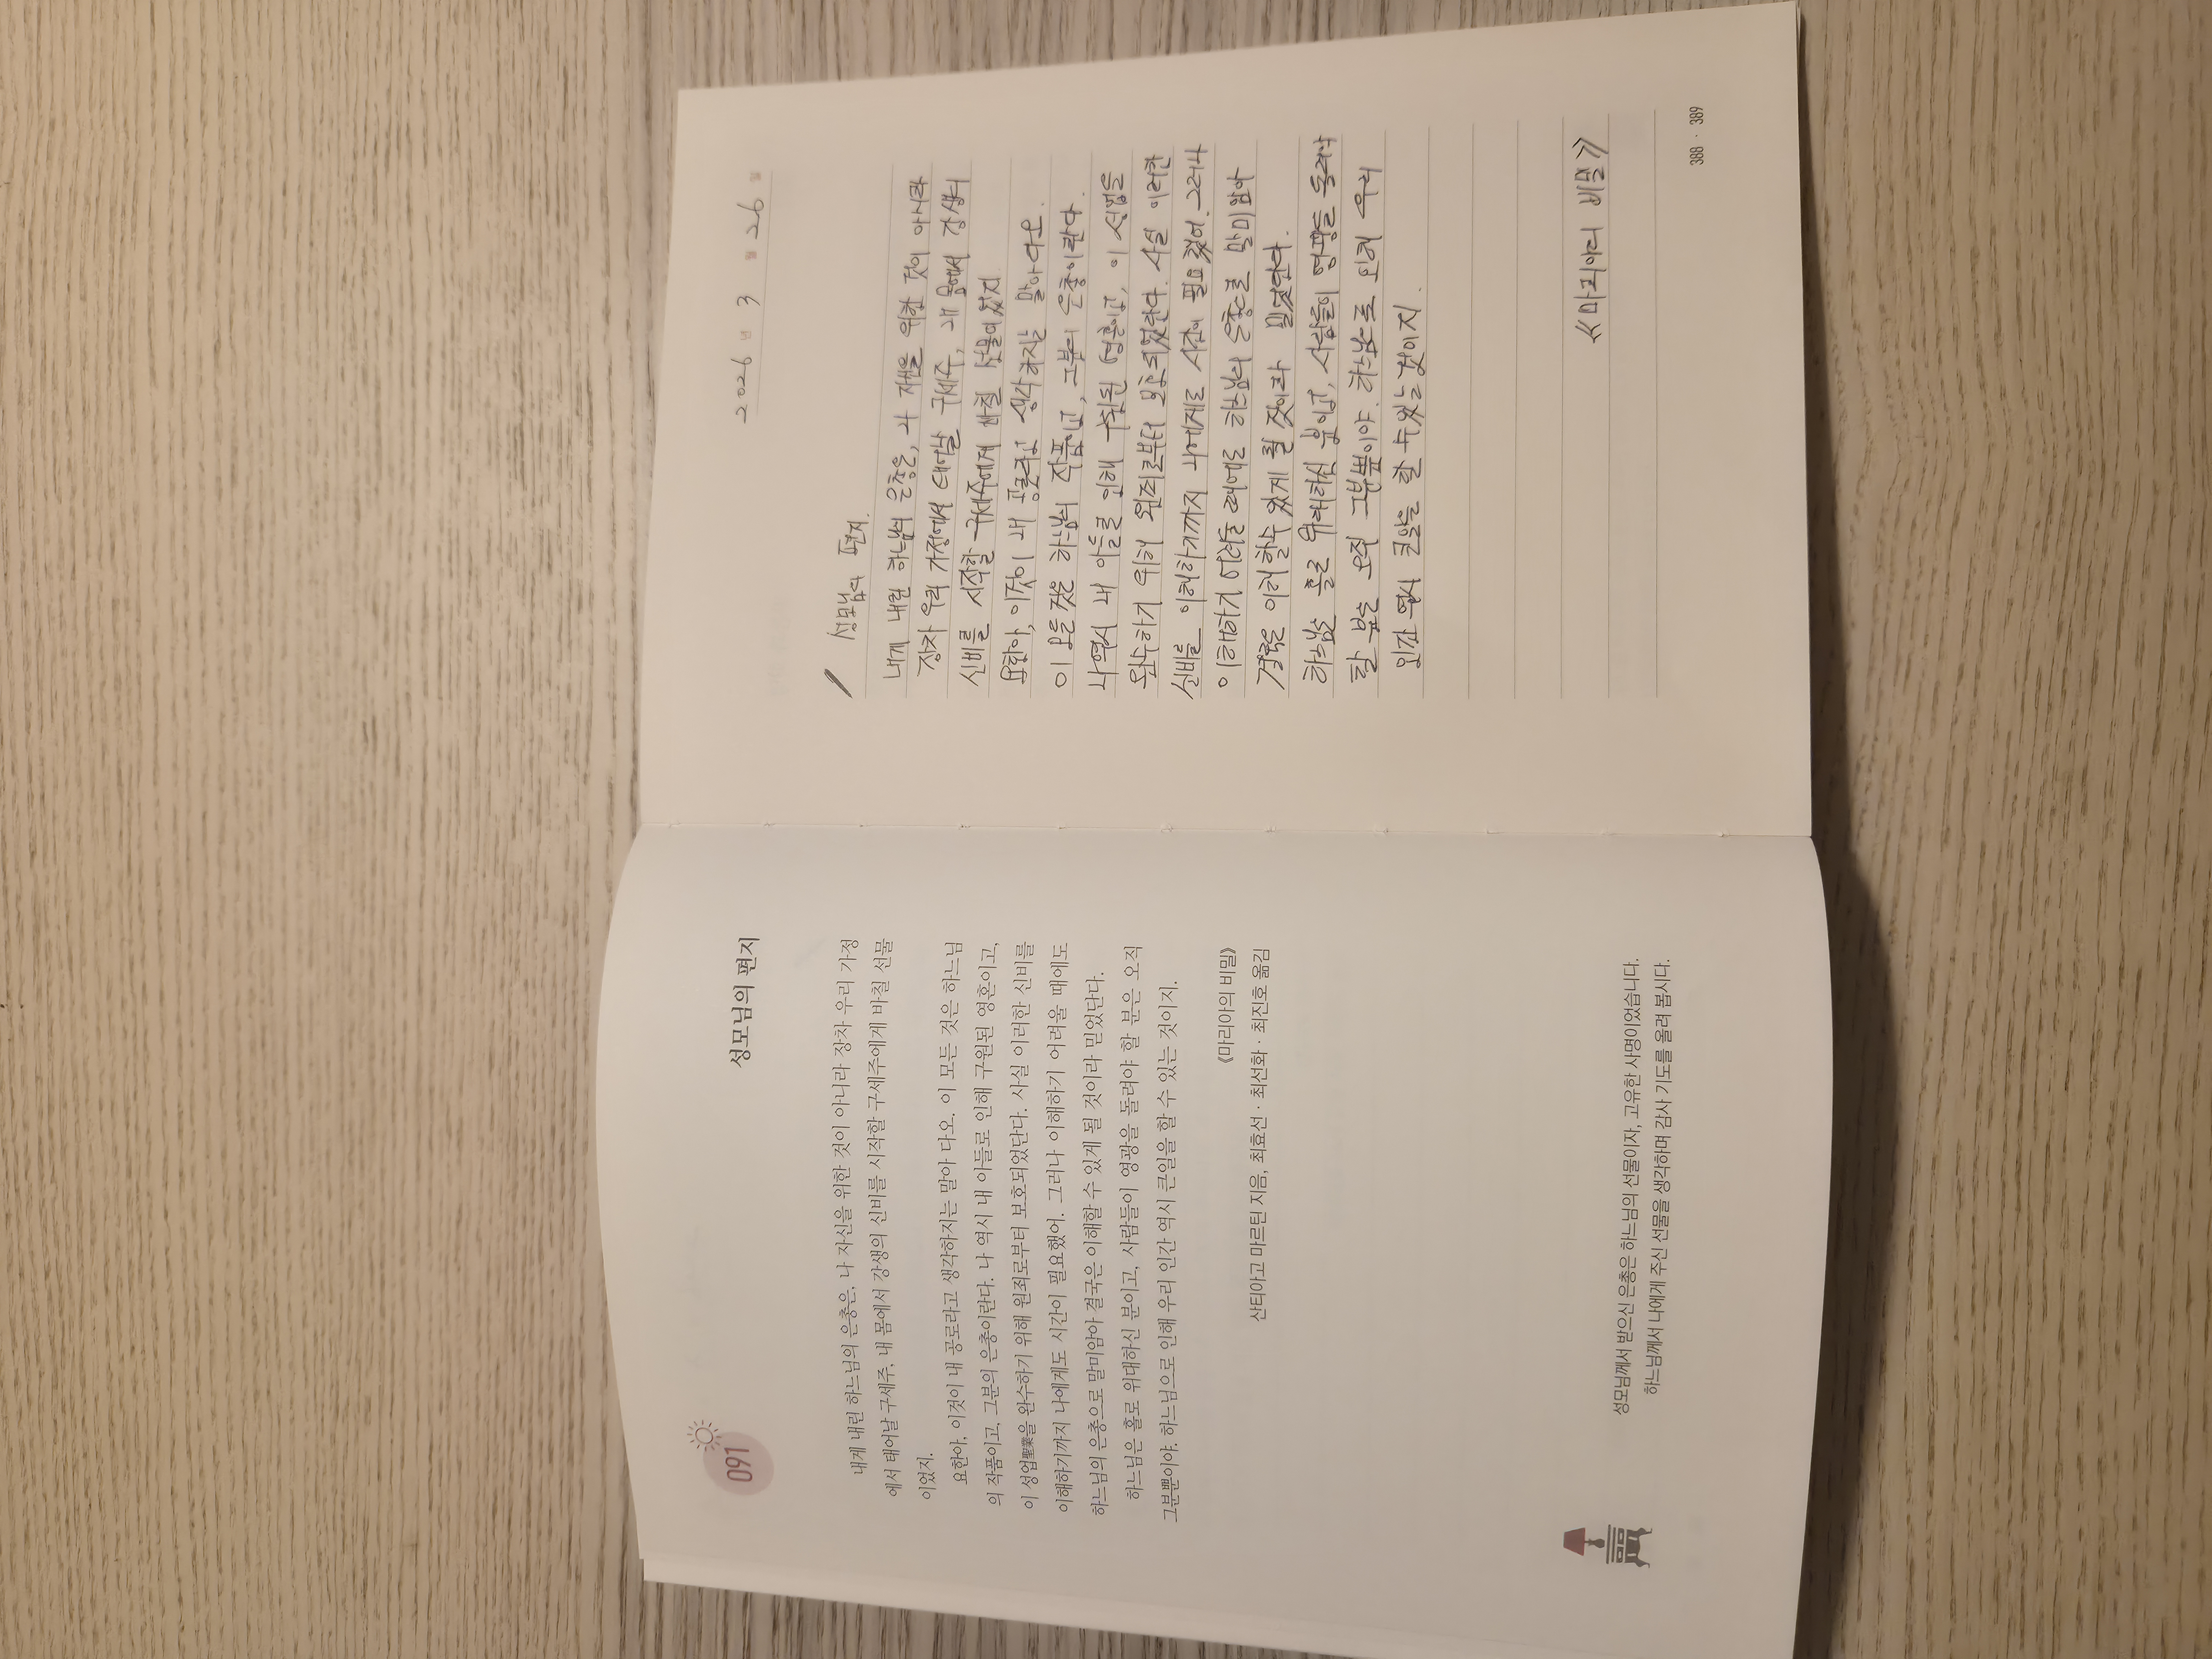 091
성모님의 편지
내게 내린 하느님의 은총은, 나 자신을 위한 것이 아니라 장차 우리 가정
에서 태어날 구세주, 내 몸에서 강생의 신비를 시작할 구세주에게 바칠 선물
이었지.
요한아, 이것이 내 공로라고 생각하지는 말아 다오. 이 모든 것은 하느님
의 작품이고, 그분의 은총이란다. 나 역시 내 아들로 인해 구원된 영혼이고,
이 성업聖業을 완수하기 위해 원죄로부터 보호되었단다. 사실 이러한 신비를
이해하기까지 나에게도 시간이 필요했어. 그러나 이해하기 어려울 때에도
하느님의 은총으로 말미암아 결국은 이해할 수 있게 될 것이라 믿었단다.
하느님은 홀로 위대하신 분이고, 사람들이 영광을 돌려야 할 분은 오직
그분뿐이야. 하느님으로 인해 우리 인간 역시 큰일을 할 수 있는 것이지.
《마리아의 비밀》
산티아고 마르틴 지음, 최효선 · 최선화 · 최진호 옮김
성모님께서 받으신 은총은 하느님의 선물이자, 고유한 사명이었습니다.
하느님께서 나에게 주신 선물을 생각하며 감사 기도를 올려 봅시다.
2026 년 3 월 26 일
성모님의 편지.
내게 내린 하느님의 은총은, 나 자신을 위한 것이 아니라
장차 우리 가정에서 태어날 구세주, 내 몸에서 강생의
신비를 시작할 구세주에게 바칠 선물이었지
요한아, 이것이 내 공로라고 생각하지는 말아다오.
이 모든 것은 하느님의 작품이고, 그분의 은총이란다.
나 역시 내 아들로 인해 구원된 영혼이고, 이 성업을
완수하기 위해 원죄로부터 보호되었단다. 사실 이러한
신비를 이해하기까지 나에게도 시간이 필요했어. 그러나
이해하기 어려울 때에도 하느님의 은총으로 말미암아
결국은 이해할수 있게 될 것이라 믿었단다.
하느님은 홀로 위대하신 분이고, 사람들이 영광을 돌려야
할 분은 오직 그분뿐이야. 하느님으로 인해 우리
인간 역시 큰일을 할 수있는 것이지.
《마리아의 비밀》
388 · 389